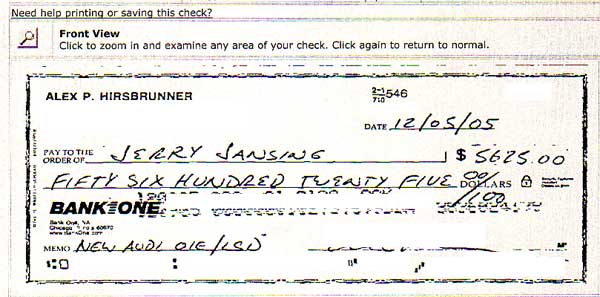 Need help printing or saving this check?
Front View
Click to zoom in and examine any area of your check. Click again to return to normal.
ALEX P. HIRSBRUNNER
2-1/710 546
DATE 12/05/05
PAY TO THE ORDER OF JERRY JANSING $ 5625.00
FIFTY SIX HUNDRED TWENTY FIVE 00/100 DOLLARS
BANK ONE
Bank One, NA
Chicago 60670
www.BankOne.com
MEMO NEW AUDI